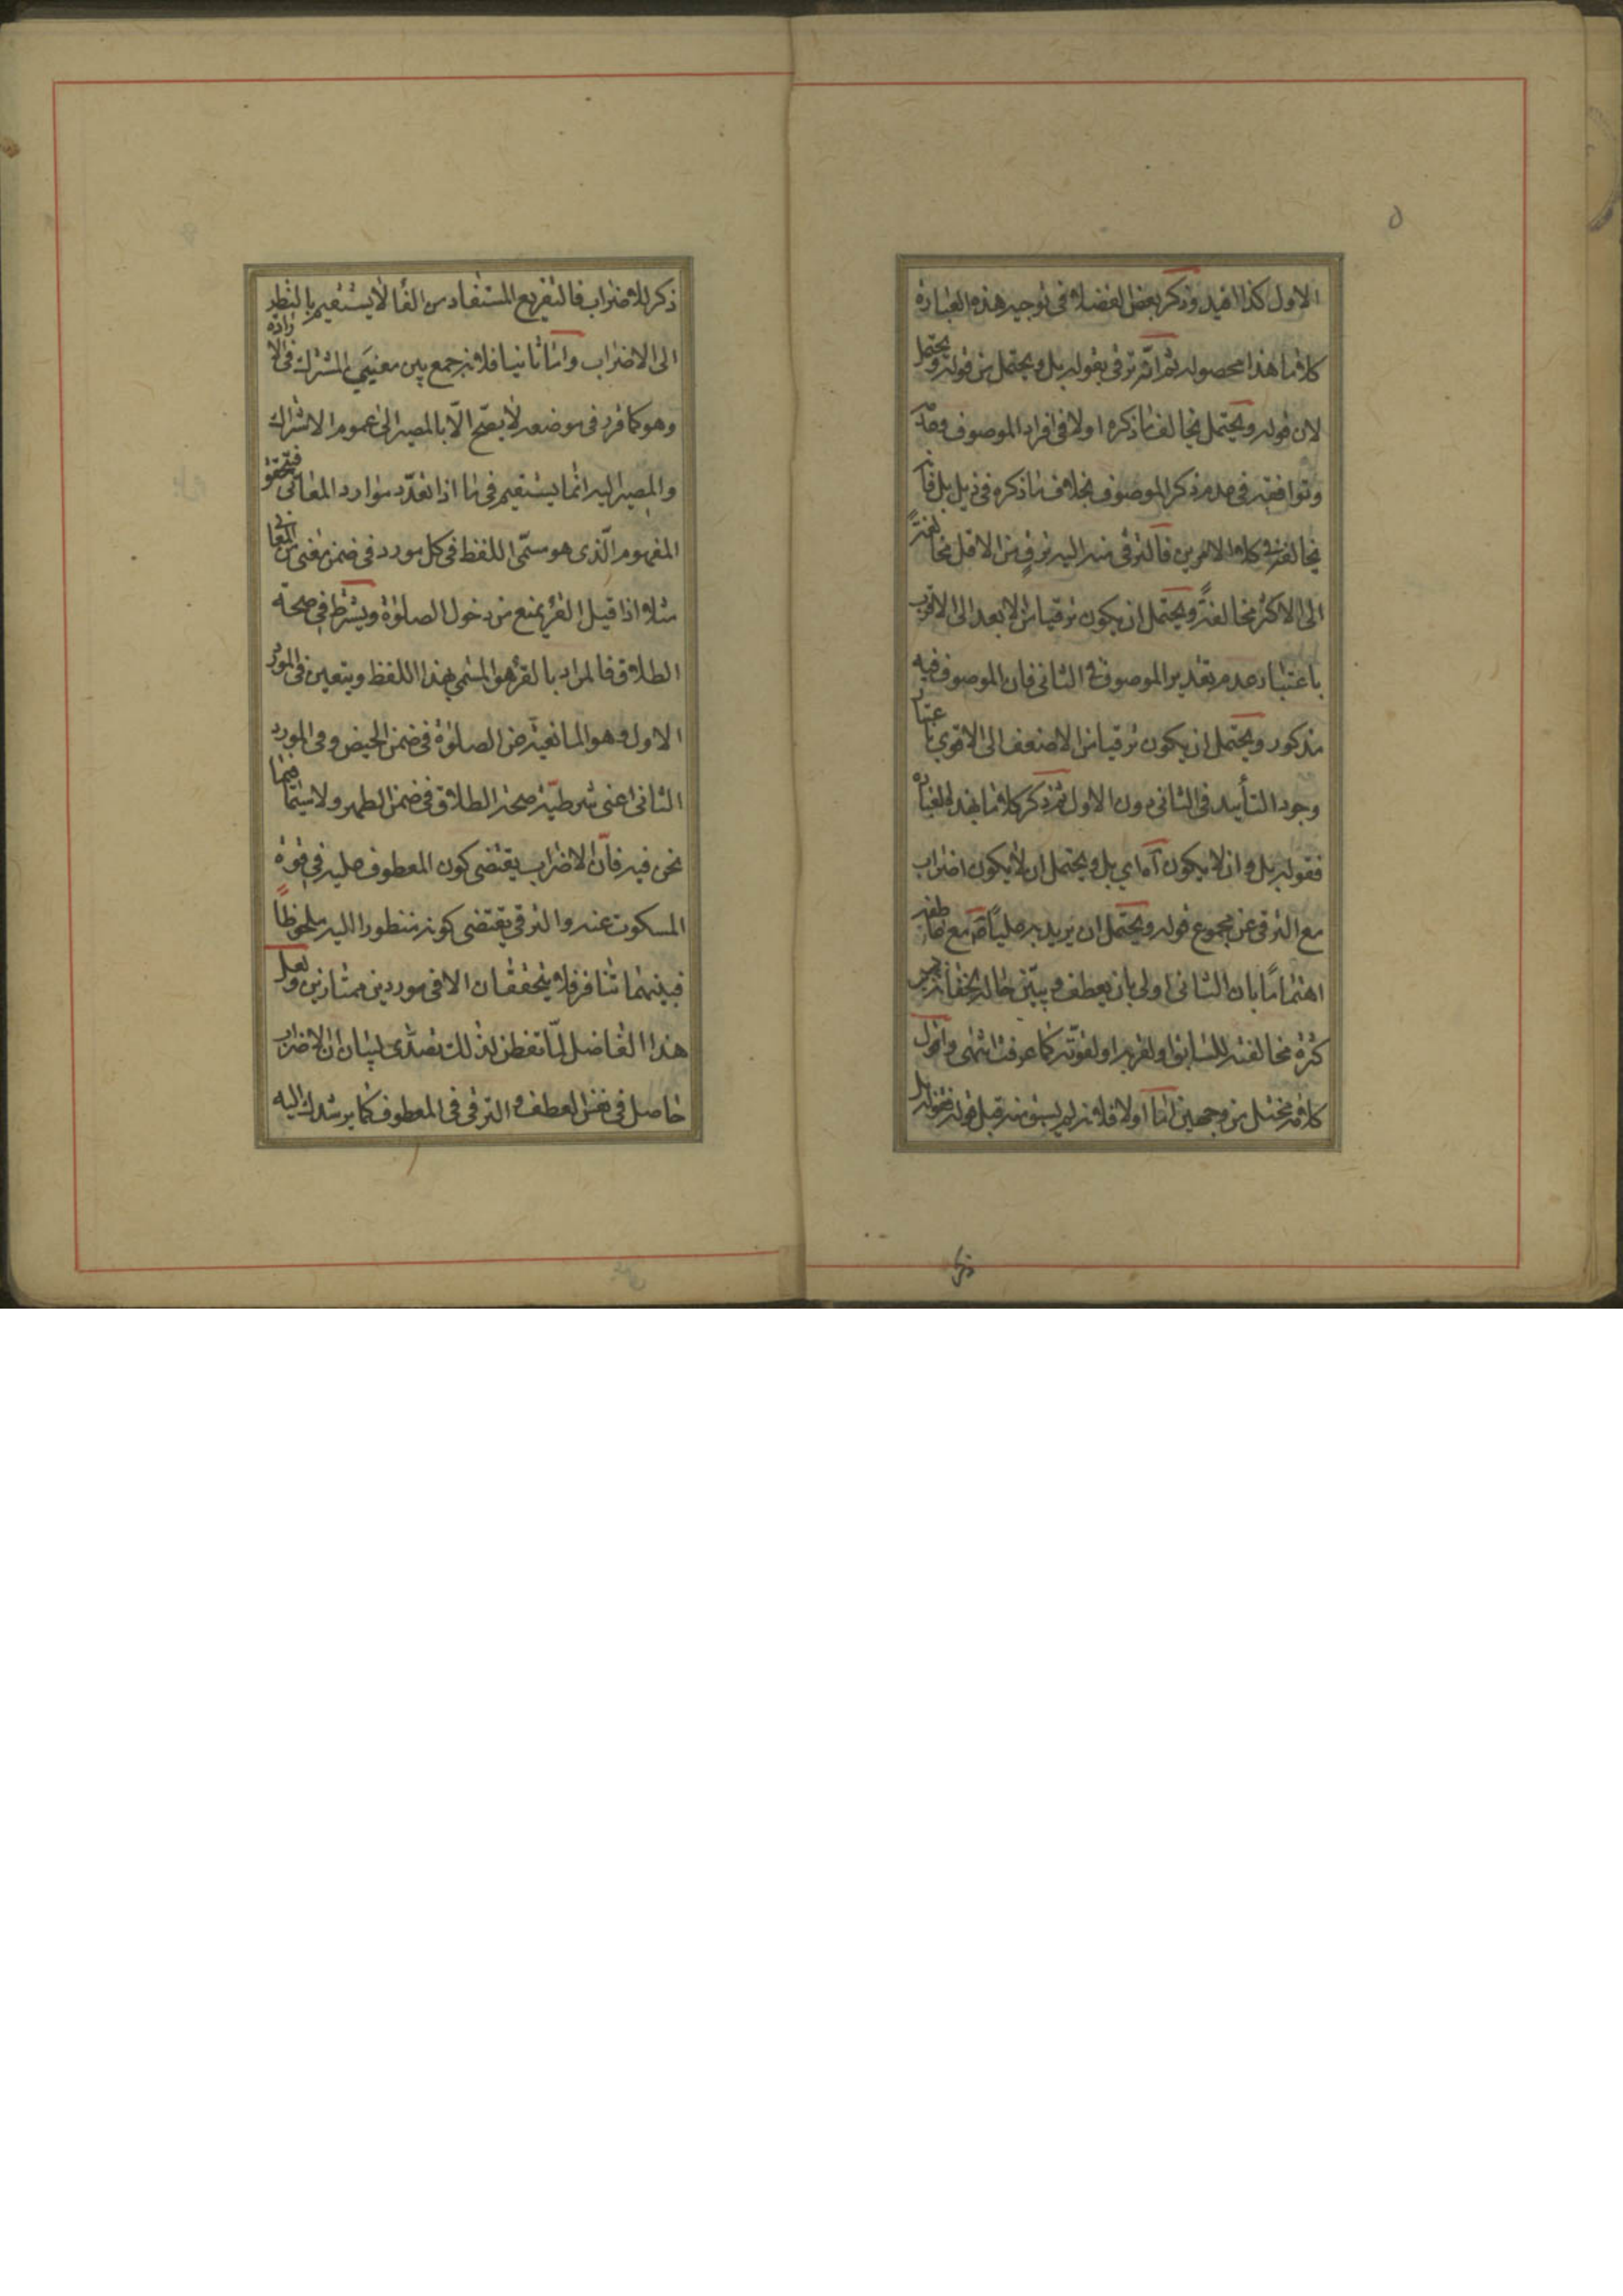 ٥
الاول كذا افيد وذكر بعض الفضلاء فى توجيه هذه العبارة
كلاما هذا محصوله ثم انه ترقى بقوله بل ويحتمل من قوله ويحتمل
لان قوله ويحتمل يخالف ما ذكره اولا فى افراد الموصوف
وتوافقه فى عدم ذكر الموصوف بخلاف ما ذكره فى ذيل بل فانه
يخالفه فى كلا الامرين فالترقى منه اليه ترق من الاقل مخالفةً
الى الاكثر مخالفةً ويحتمل ان يكون ترقيا من الابعد الى الاقرب
باعتبار عدم تقدير الموصوف فى الثانى فان الموصوف فيه
مذكور ويحتمل ان يكون ترقيا من الاضعف الى الاقوى باعتبار
وجود التأييد فى الثانى دون الاول ثم ذكر كلاما بهذه العبارة
فقوله بل وان لا يكون آه اي بل ويحتمل ان لا يكون اضراب
مع الترقى عن مجموع قوله ويحتمل ان يريد به مليا آه مع
اهتماما بان الثانى اولى بان يعطف ويبين حاله
كثرة مخالفته للسابق او لقربه او لقوته كما عرفت انتهى واقول
كلامه مختل من وجهين اما اولا فلانه لم يسبق منه قبل قوله فقوله بل
ذكر للاضراب فالتفريع المستفاد من الفاء لا يستقيم بالنظر
الى الاضراب واما ثانيا فلانه جمع بين معنيي المشترك فى الارادة
وهو كما قرر فى موضعه لا يصح الّا بالمصير الى عموم الاشتراك
والمصير اليه انما يستقيم فى ما اذا تعدّد موارد المعانى فيتحقق
المفهوم الّذى هو مسمّى اللفظ فى كل مورد فى ضمن معنى من المعانى
مثلا اذا قيل القرء يمنع من دخول الصلوة ويشترط فى صحة
الطلاق فالمراد بالقرء هو المسمى بهذا اللفظ ويتعين فى المورد
الاول وهو المانعية عن الصلوة فى ضمن الحيض وفى المورد
الثانى اعنى شرطية صحة الطلاق فى ضمن الطهر ولا سيّما فيما
نحن فيه فانّ الاضراب يقتضى كون المعطوف عليه فى قوة
المسكوت عنه والترقى يقتضى كونه منظورا اليه ملحوظاً
فبينهما تنافر فلا يتحققان الا فى موردين ممتازين ولعل
هذا الفاضل لمّا تفطن لذلك تصدّى لبيان ان الاضراب
حاصل فى نفس العطف و الترقى فى المعطوف كما يرشدك اليه